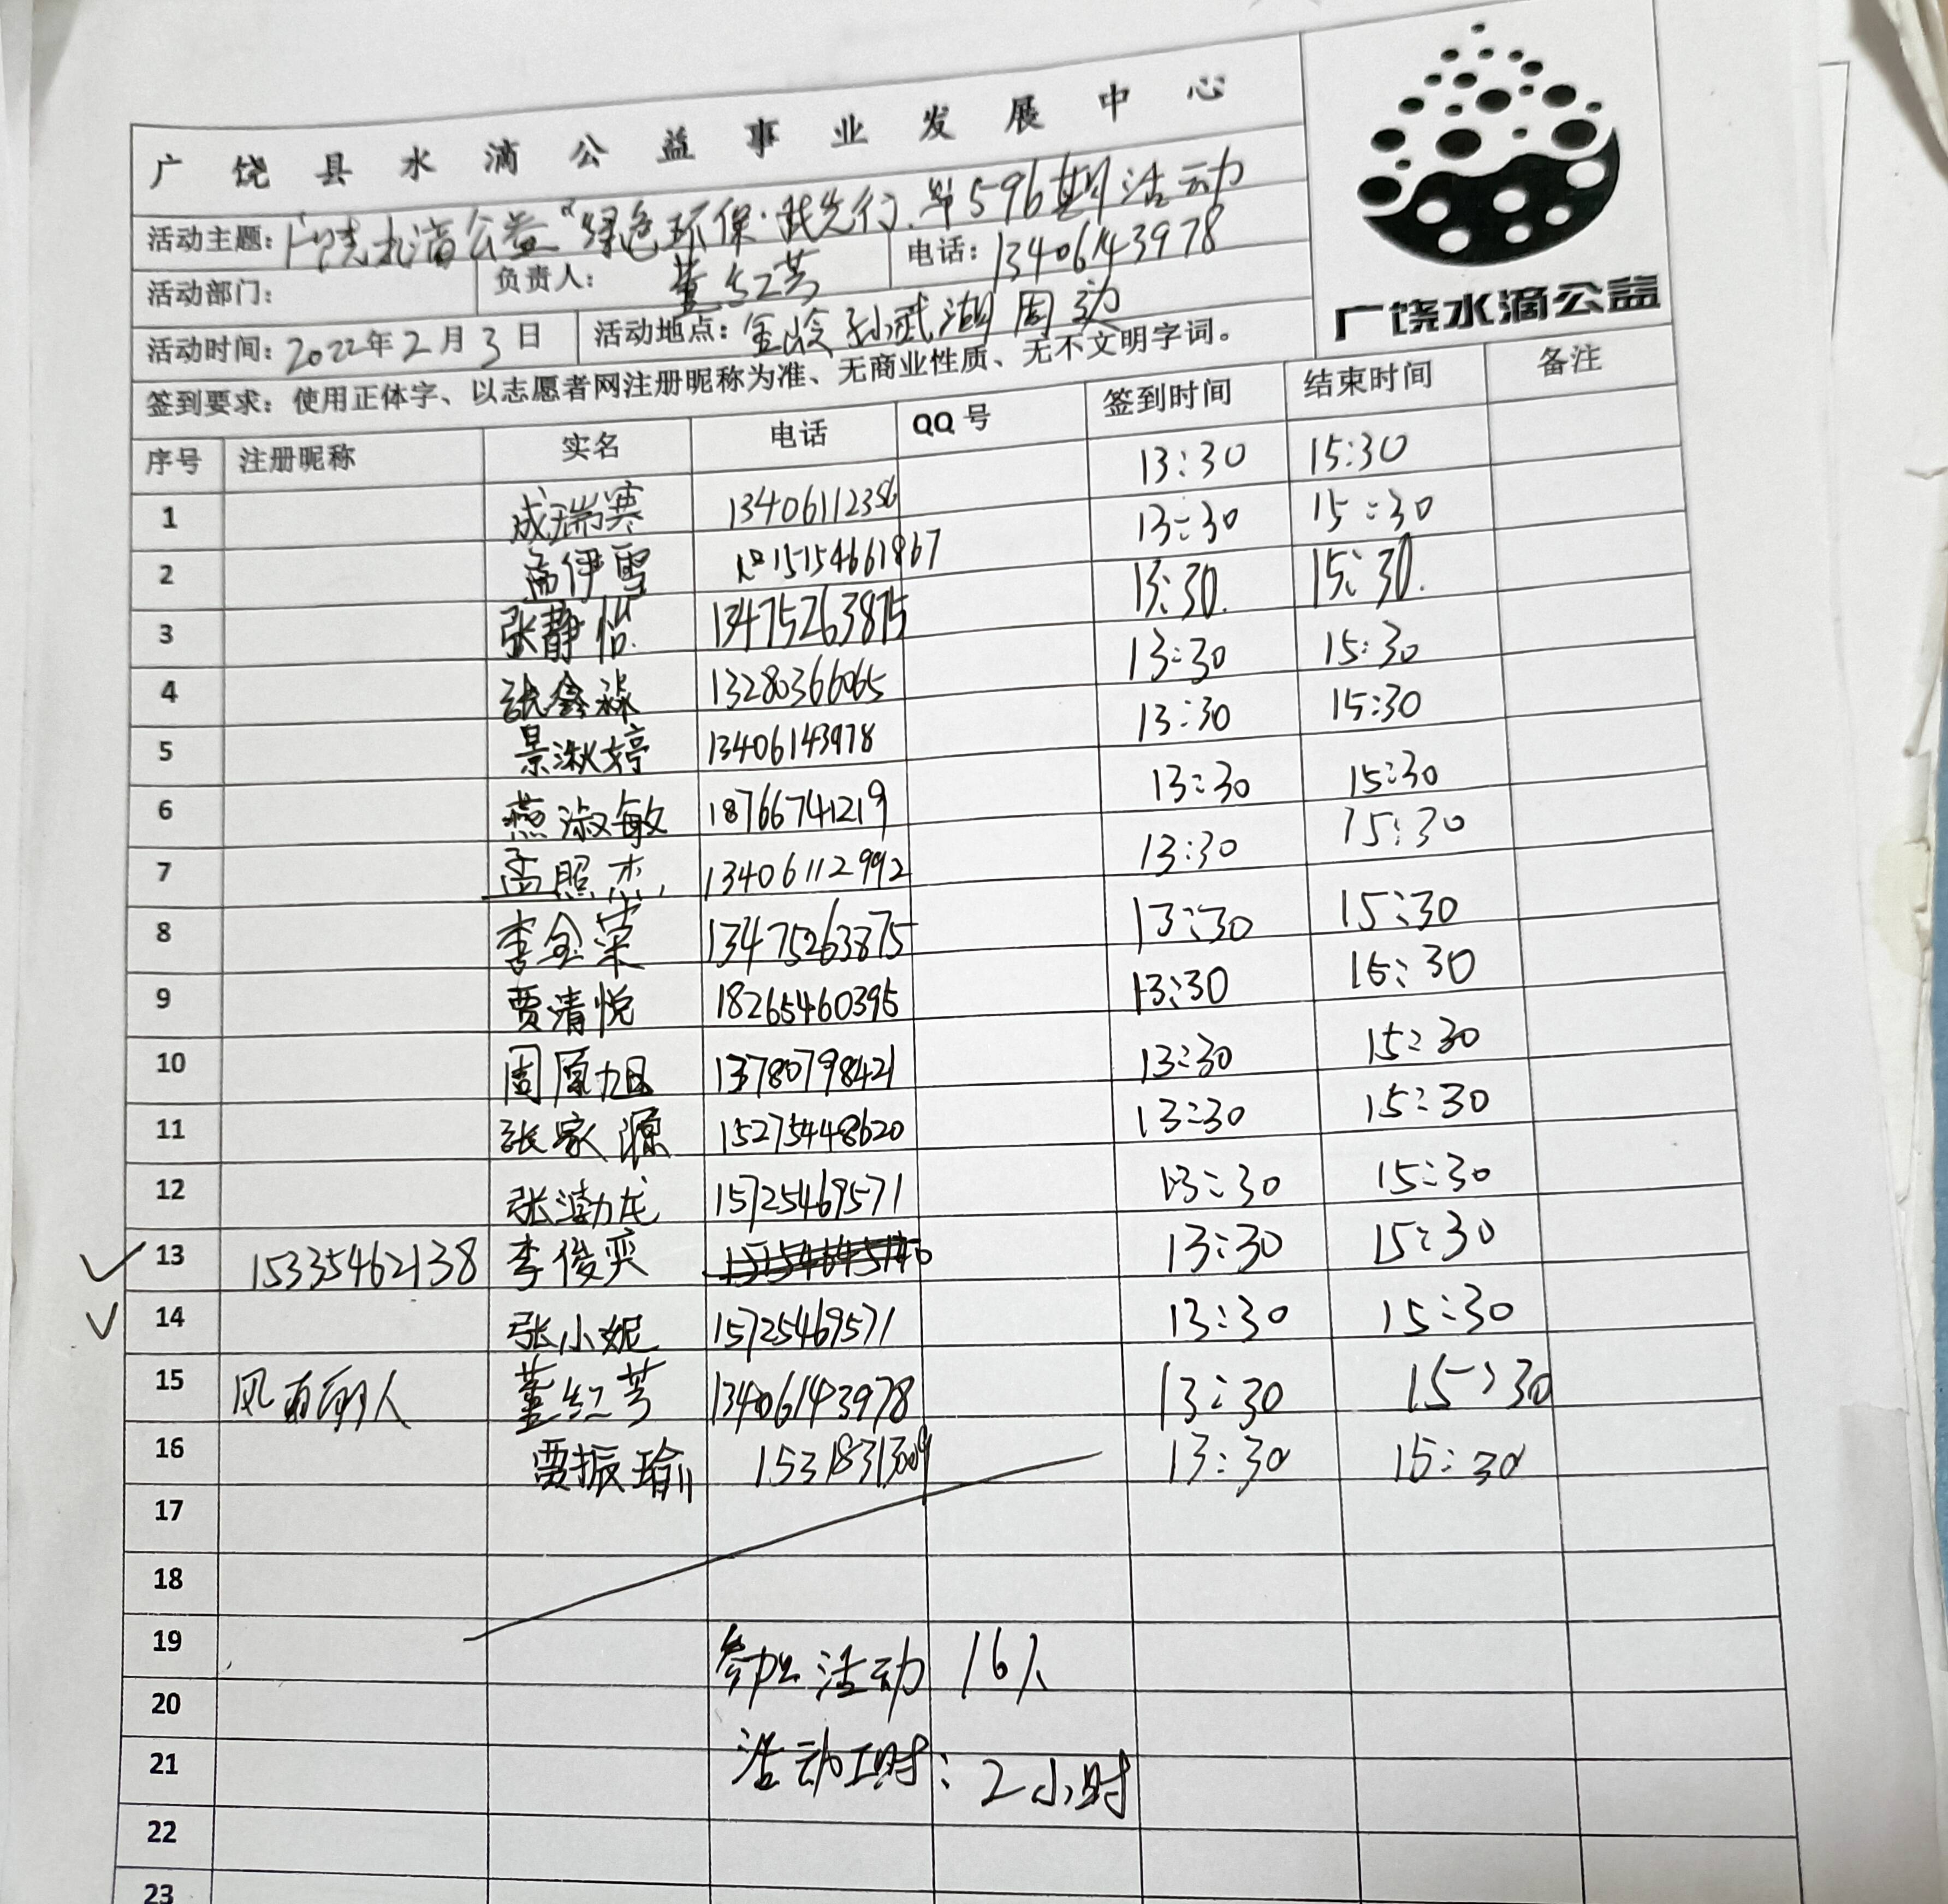 广饶县水滴公益事业发展中心
活动主题：广饶水滴公益“绿色环保·我先行.第596期活动
活动部门： 负责人：董红芳 电话：13406143978
活动时间：2022年2月3日 活动地点：金岭孙武湖周边
签到要求：使用正体字、以志愿者网注册昵称为准、无商业性质、无不文明字词。
广饶水滴公益
序号 注册昵称 实名 电话 QQ号 签到时间 结束时间 备注
1 成瑞萁 13406112356 13:30 15:30
2 孟伊雪 15154661867 13:30 15:30
3 张静怡 13475263875 13:30 15:30
4 张鑫淼 13280366065 13:30 15:30
5 景淑婷 13406143978 13:30 15:30
6 燕淑敏 18766741219 13:30 15:30
7 孟照杰 13406112992 13:30 15:30
8 李金荣 13475263875 13:30 15:30
9 贾清悦 18265460395 13:30 15:30
10 周原旭 13780798421 13:30 15:30
11 张家源 15275448620 13:30 15:30
12 张渤龙 15725469571 13:30 15:30
13 15335462138 李俊奕 13:30 15:30
14 张小妮 15725469571 13:30 15:30
15 风雨丽人 董红芳 13406143978 13:30 15:30
16 贾振瑜 15318313009 13:30 15:30
17
18
19
参加活动 16人
20
21
活动工时：2小时
22
23